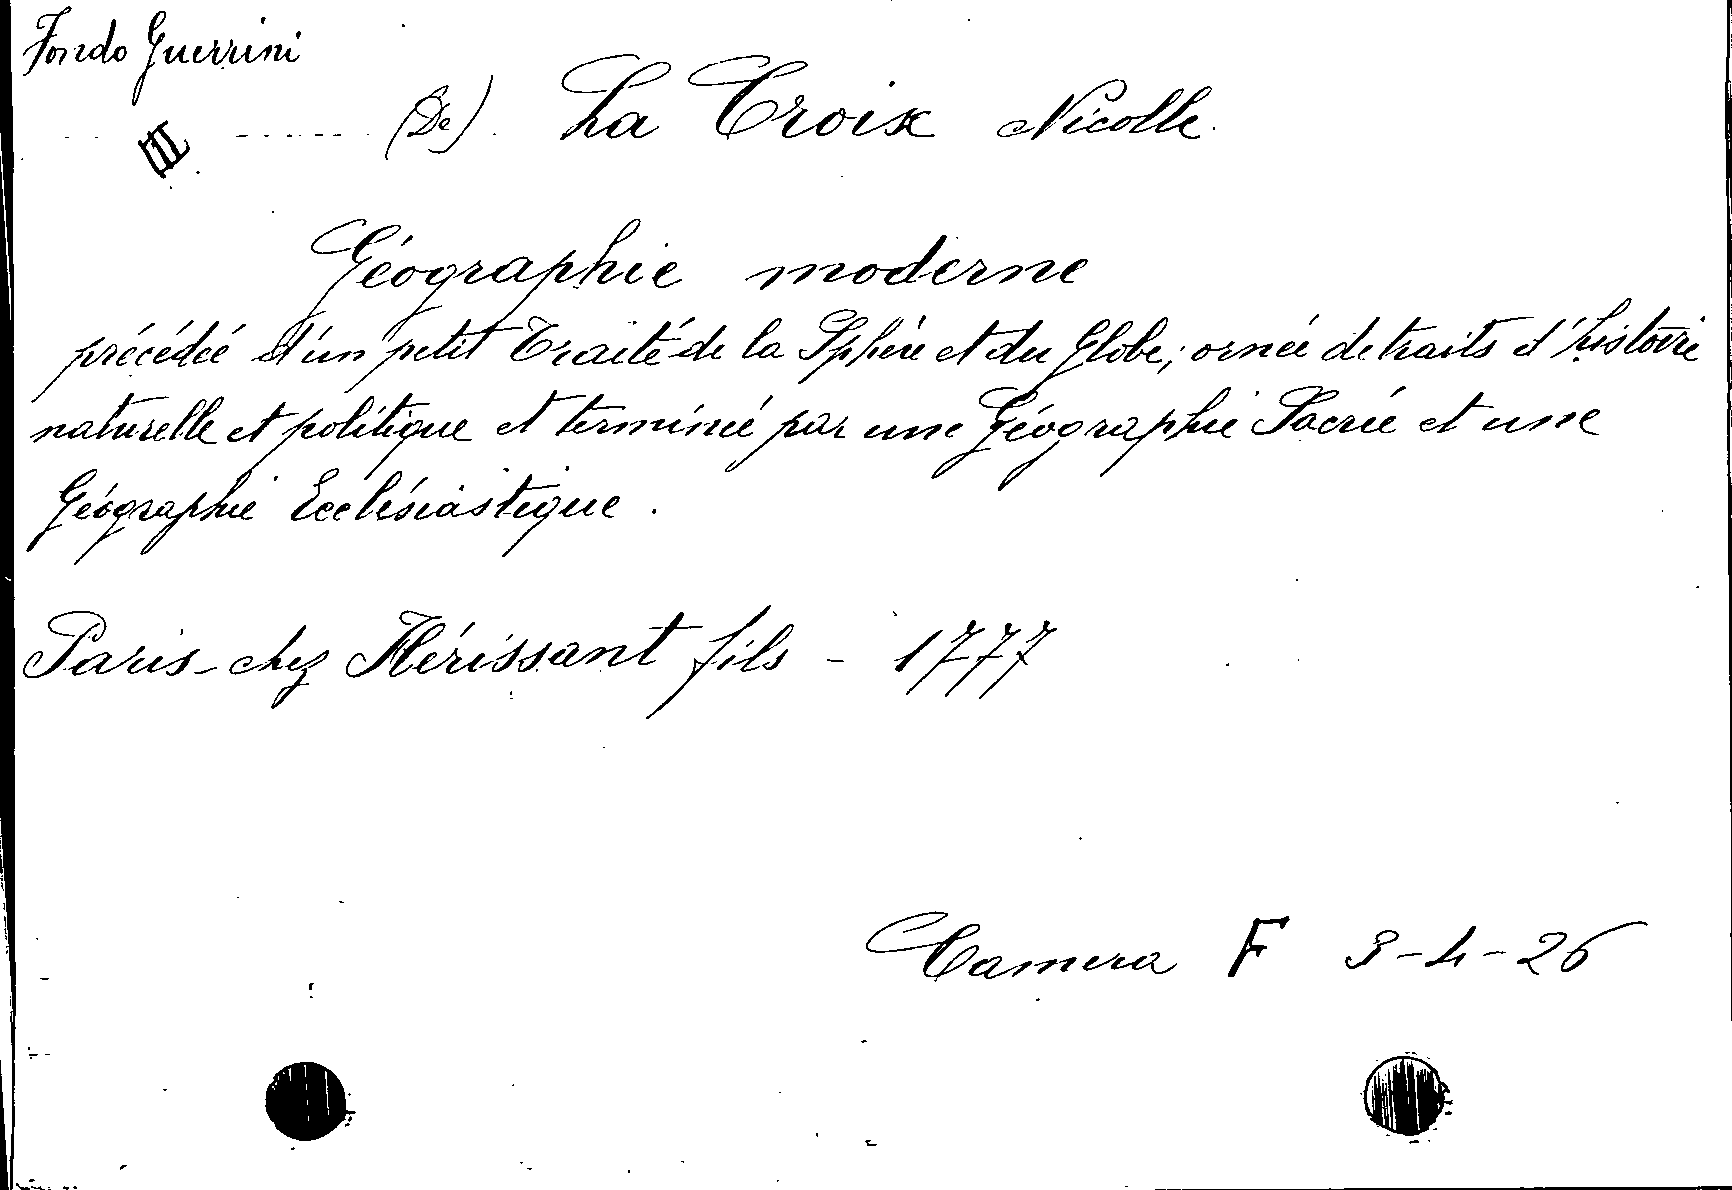 Fondo Guerrini
III (De) La Croix Nicolle
Géographie moderne
précédée d'un petit Traité de la Sphère et du Globe; ornée de traits d'histoire
naturelle et politique et terminée par une Géographie Sacrée et une
Géographie Ecclésiastique.
Paris - chez Hérissant fils - 1777
Camera F 3-4-26